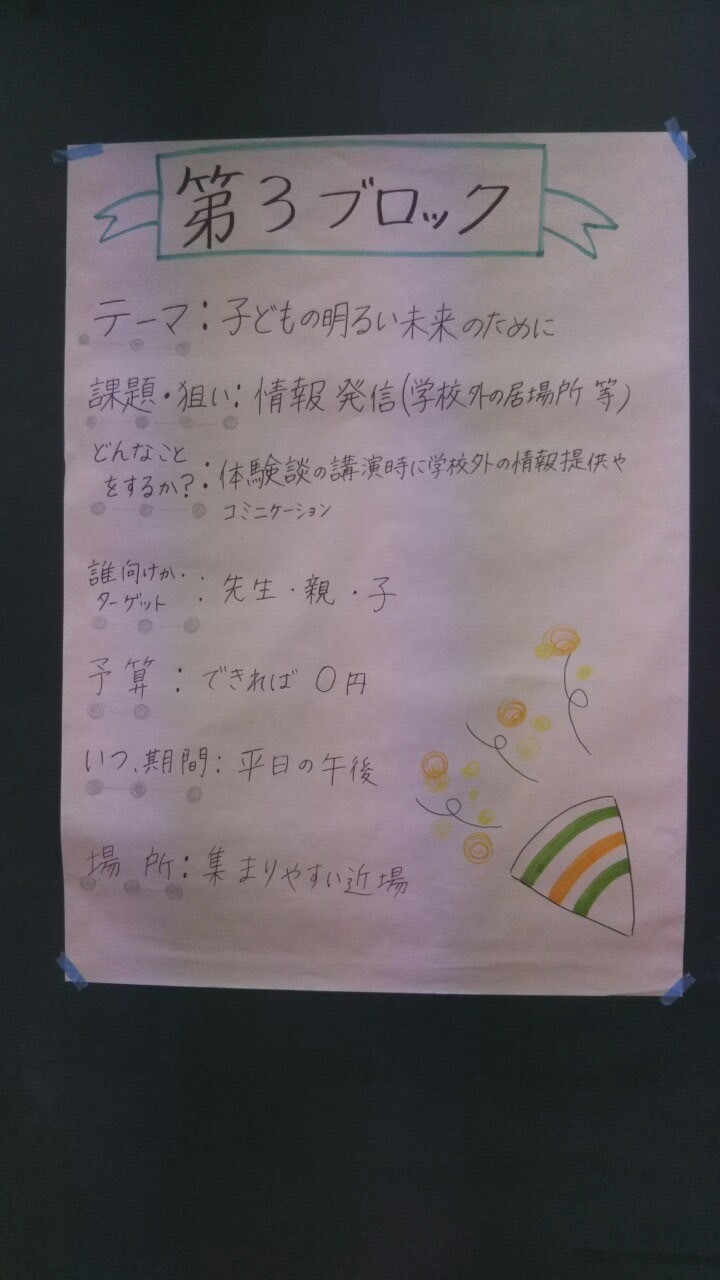 第3ブロック
テーマ：子どもの明るい未来のために
課題・狙い：情報発信(学校外の居場所 等)
どんなこと
をするか？：体験談の講演時に学校外の情報提供や
コミニケーション
誰向けか・
ターゲット：先生・親・子
予算：できれば0円
いつ、期間：平日の午後
場所：集まりやすい近場